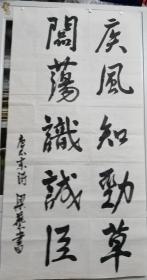 疾風知勁草
闆蕩識誠臣
唐太宗詩 梁 書